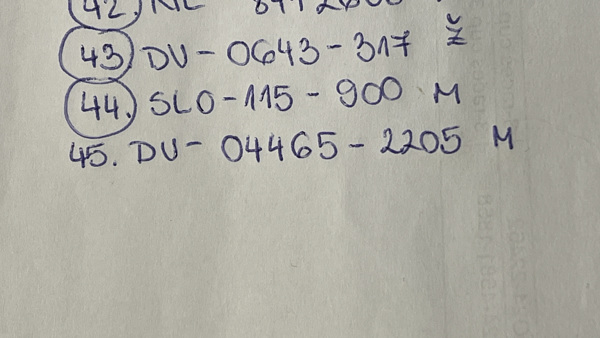 42. NL
43. DV - 0643 - 317 Ž
44. SLO - 115 - 900 M
45. DV - 04465 - 2205 M